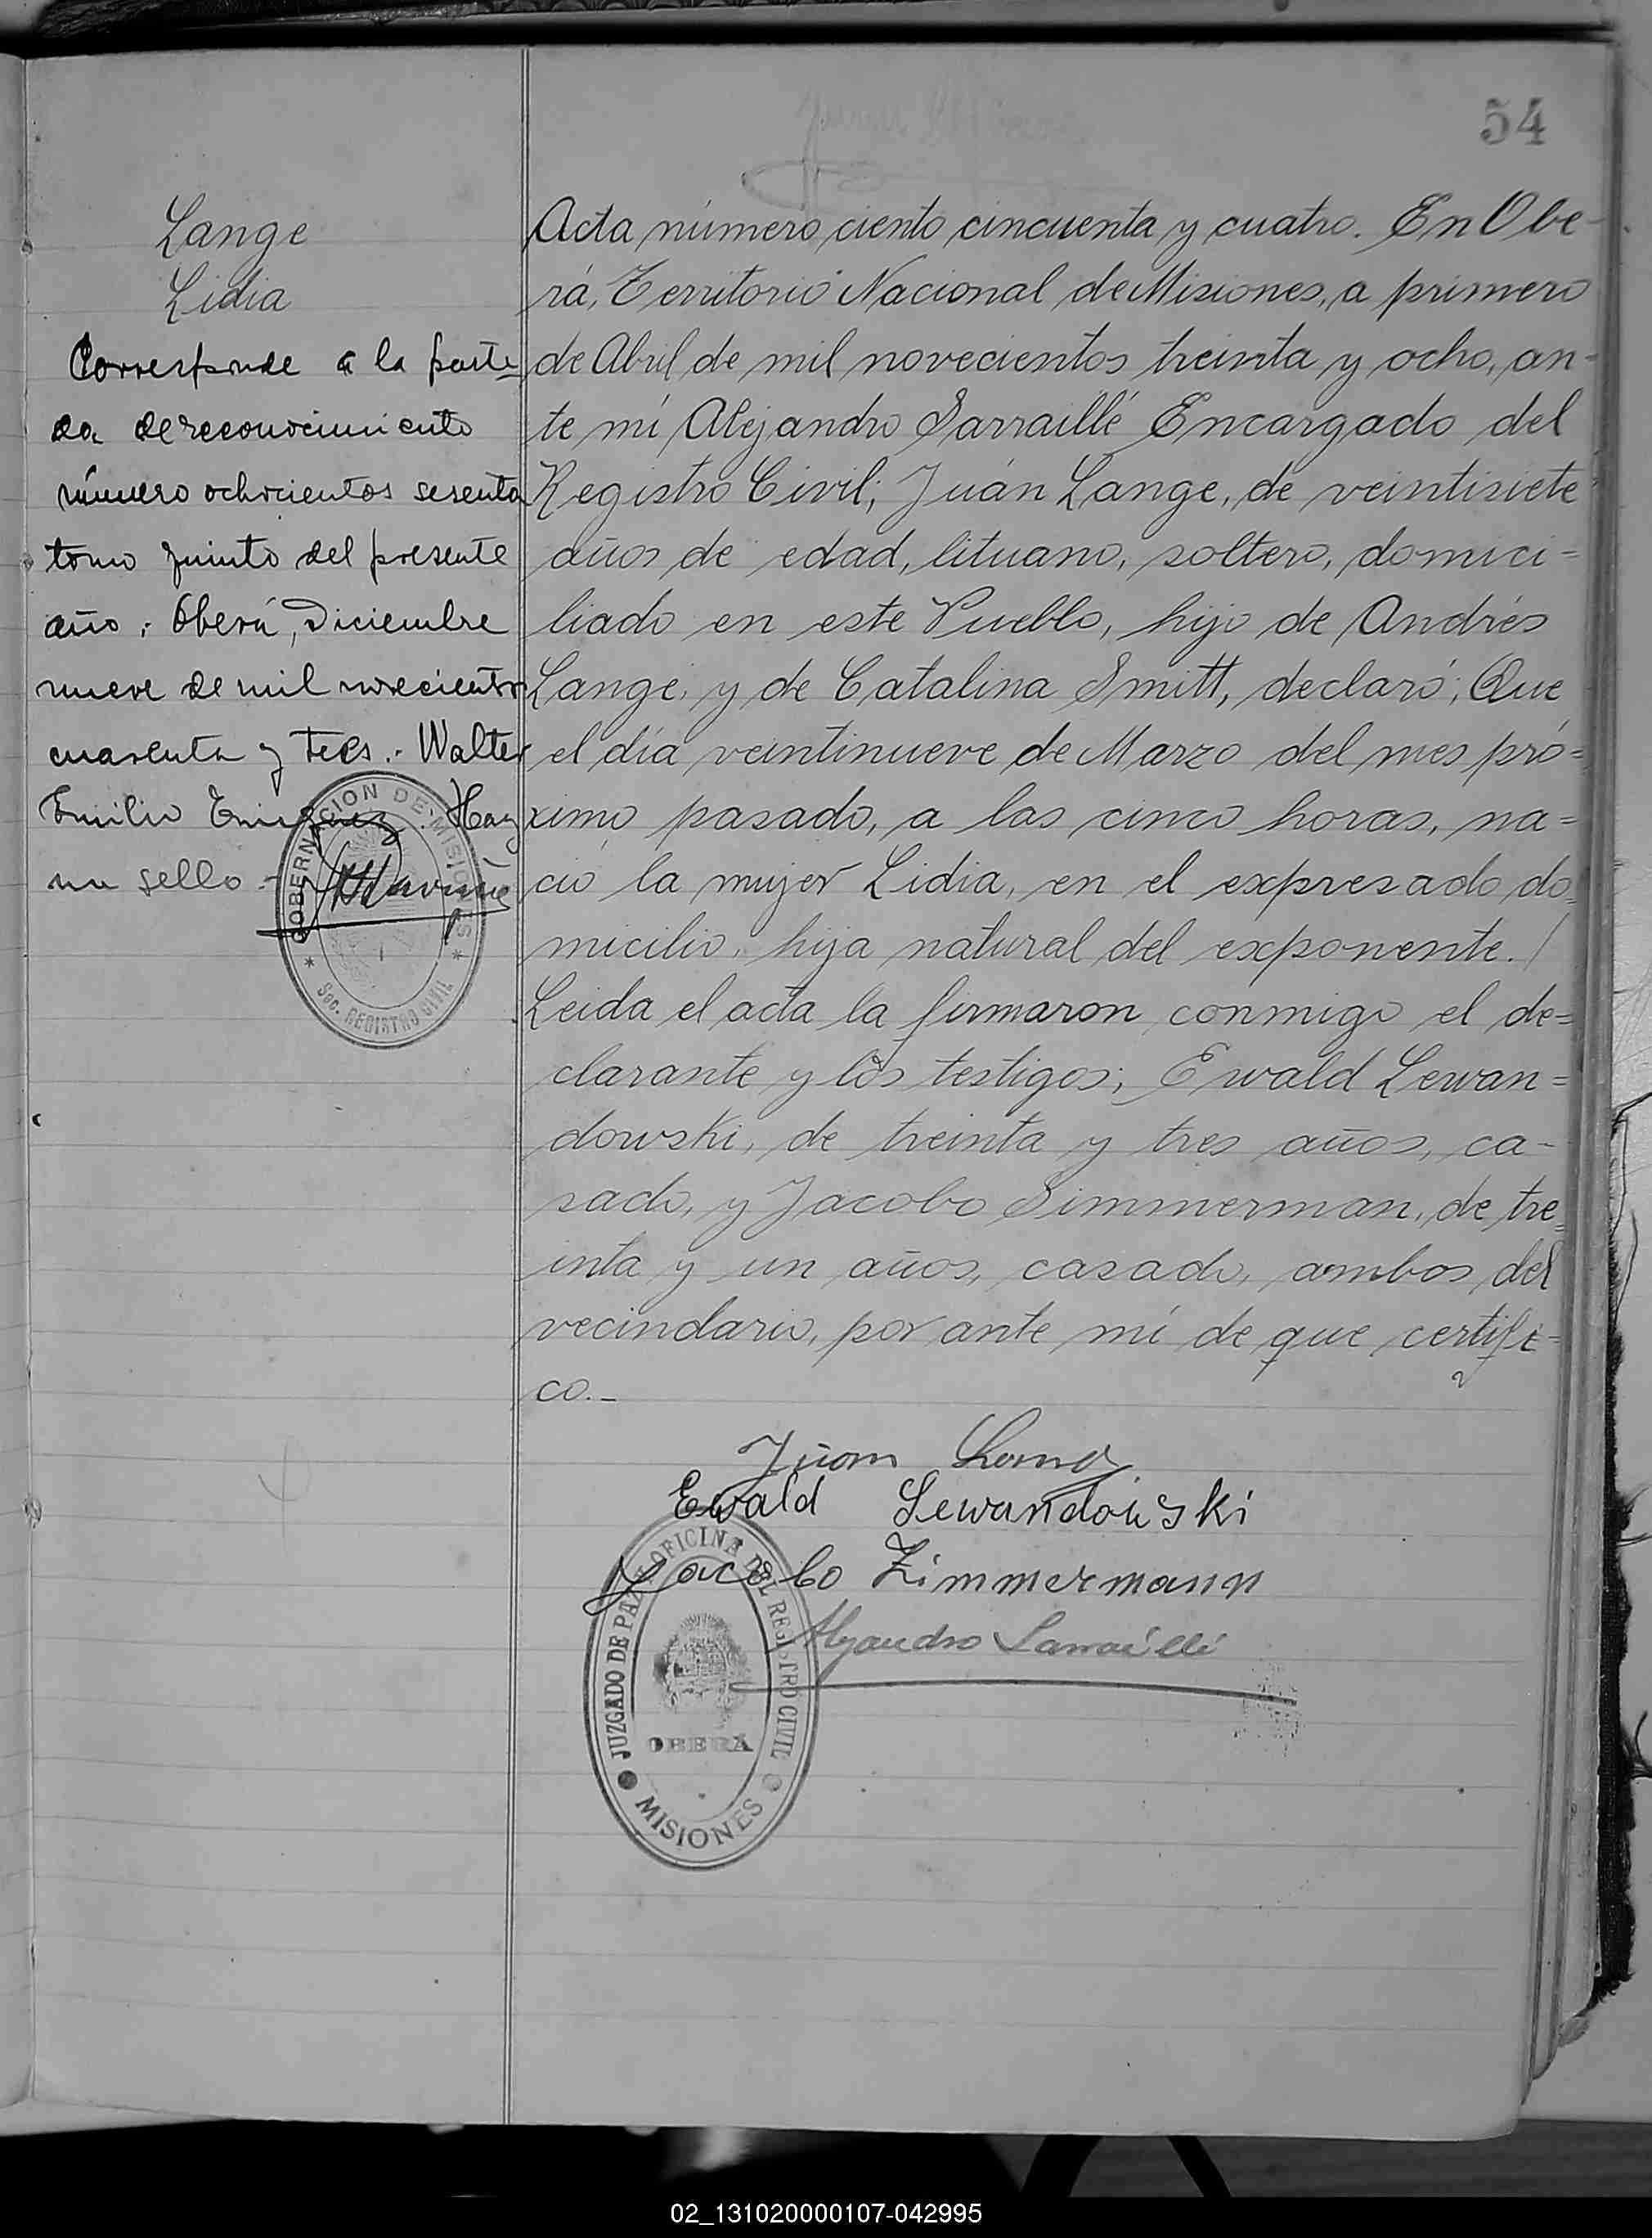 54
Lange
Lidia
Corresponde a la parti=
da de reconocimiento
número ochocientos sesenta
tomo quinto del presente
año: Oberá, Diciembre
nueve de mil novecientos
cuarenta y tres.- Walter
Emilio Hay
un sello.-
GOBERNACION DE MISIONES
Sec. REGISTRO CIVIL
Acta número ciento cincuenta y cuatro. En Obe-
rá, Territorio Nacional de Misiones, a primero
de Abril de mil novecientos treinta y ocho, an-
te mí Alejandro Sarraillé Encargado del
Registro Civil; Juán Lange, de veintisiete
años de edad, lituano, soltero, domici=
liado en este Pueblo, hijo de Andrés
Lange, y de Catalina Smitt, declaró; Que
el día veintinueve de Marzo del mes pró=
ximo pasado, a las cinco horas, na=
ció la mujer Lidia, en el expresado do=
micilio, hija natural del exponente. /
Leida el acta la firmaron conmigo el de=
clarante y los testigos; Ewald Lewan=
dowski, de treinta y tres años, ca-
sado, y Jacobo Simmerman, de tre=
inta y un años, casado, ambos del
vecindario, por ante mí de que certifi-
co.-
Juan Lang
Ewald Lewandowski
Jacobo Zimmermann
Alejandro Sarraillé
JUZGADO DE PAZ E OFICINA DEL REGISTRO CIVIL
OBERA
MISIONES
02_131020000107-042995